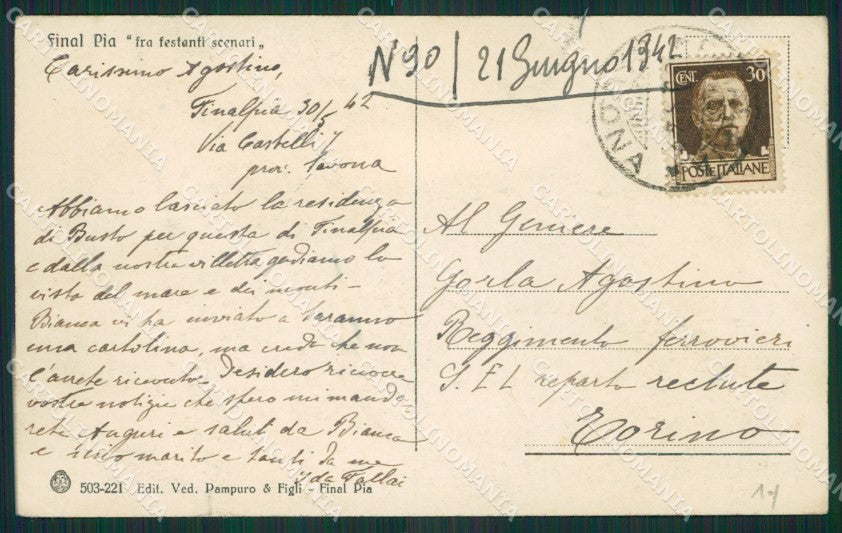 Final Pia "fra festanti scenari"
N 90 / 21 Giugno 1942
Carissimo Agostino,
Finalpia 30/5 42
Via Castelli 7
prov. Savona
Abbiamo lasciato la residenza
di Busto per questa di Finalpia
e dalla nostra villetta godiamo la
vista del mare e dei monti -
Bianca vi ha inviato a Taranto
una cartolina, ma credo che non
l'avrete ricevuta. Desidero ricevere
vostre notizie che spero mi mande
rete Auguri e saluti da Bianca
e suo marito e tanti da me
Ida Fallai
503-221 Edit. Ved. Pampuro & Figli - Final Pia
CENT. 30
POSTE ITALIANE
Al Geniere
Gorla Agostino
Reggimento ferrovieri
reparto reclute
Torino
CARTOLINOMANIA